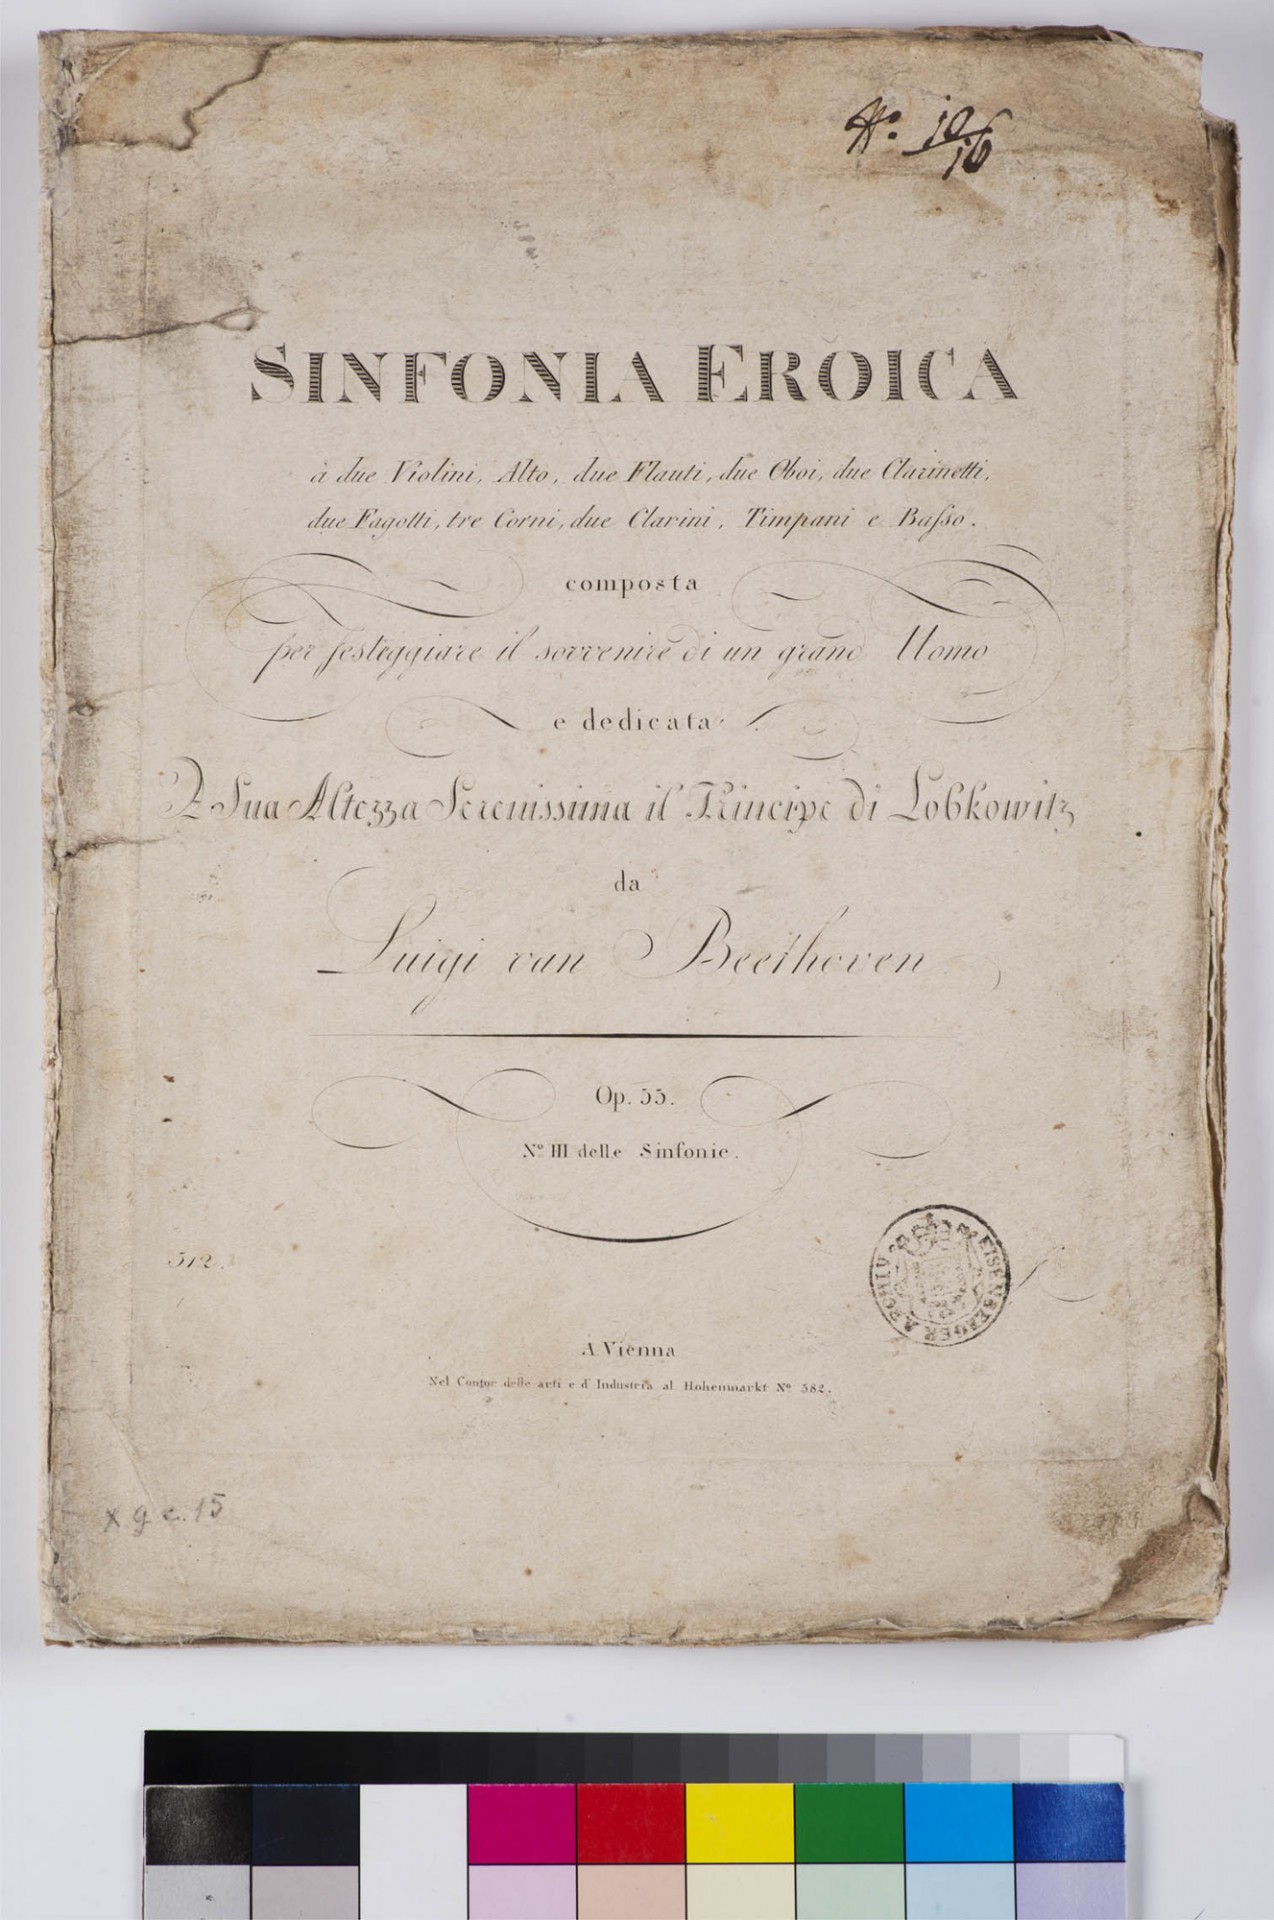 No. 10/16
SINFONIA EROICA
à due Violini, Alto, due Flauti, due Oboi, due Clarinetti,
due Fagotti, tre Corni, due Clarini, Timpani e Basso.
composta
per festeggiare il sovvenire di un grand Uomo
e dedicata
A Sua Altezza Serenissima il Principe di Lobkowitz
da
Luigi van Beethoven
Op. 55.
No III delle Sinfonie.
512.
EISENBERGER ARCHIV
A Vienna
Nel Contor delle arti e d'Industria al Hohenmarkt No 582.
X g c. 15